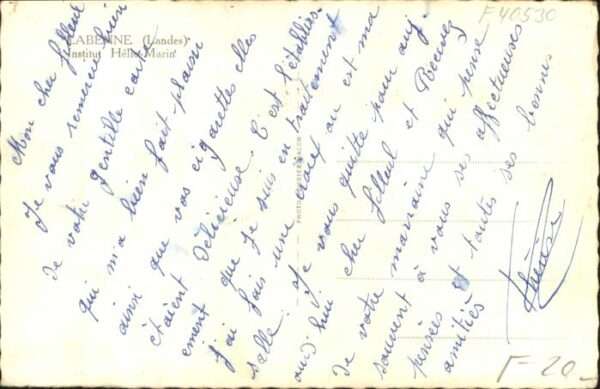 F40530
LABENNE (Landes)
Institut Hélio-Marin
Mon cher filleul
Je vous remercie bien
de votre gentille carte
qui m'a bien fait plaisir
ainsi que vos cigarettes elles
étaient délicieuses. C'est l'établiss-
ement que je suis en traitement
j'ai fais une croix ou est ma
salle. Je vous quitte pour auj-
ourd'hui cher filleul et Recevez
de votre marraine qui pense
souvent à vous ses affectueuses
pensées et toutes ses bonnes
amitiés
F-20-